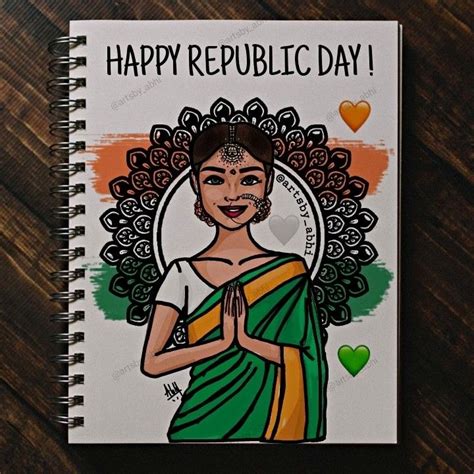 HAPPY REPUBLIC DAY !
@artsby_abhi
@artsby_abhi
@artsby_abhi
@artsby_abhi
@artsby_abhi
@artsby_abhi
Abhi